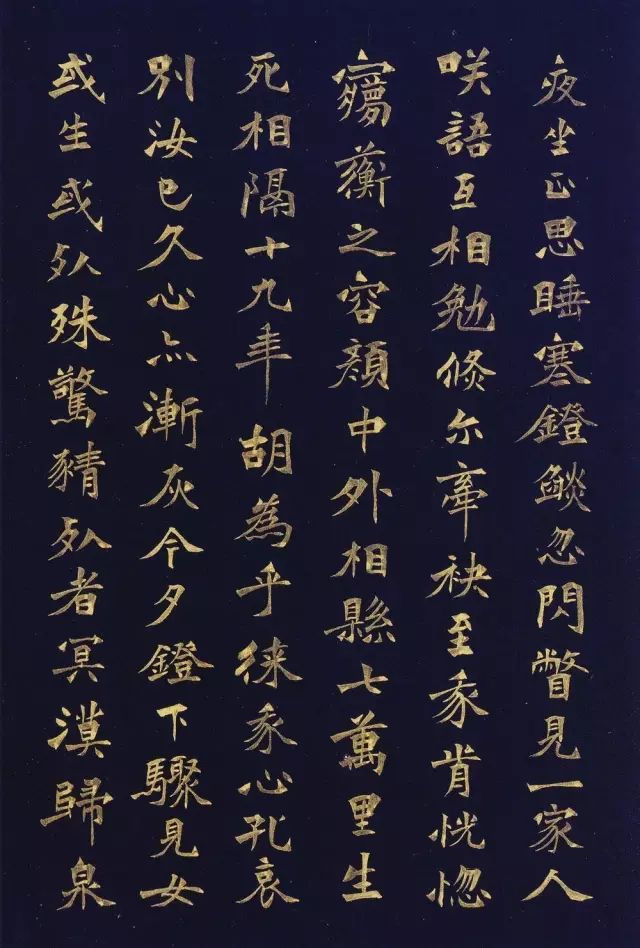 夜坐正思睡寒鐙燄忽閃瞥見一家人
咲語互相勉倏尓牽袂至我歬恍惚
蘅之容顏中外相縣七萬里生
死相隔十九年胡為乎徠我心孔哀
別汝已久心亦漸灰今夕鐙下驟見女
或生或死殊驚猜死者冥漠歸泉